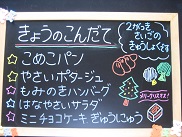 きょうのこんだて
2がっき
さいごの
きゅうしょくです
☆こめこパン
☆やさいポタージュ
☆もみのきハンバーグ
☆はなやさいサラダ
☆ミニチョコケーキ ぎゅうにゅう
メリークリスマス!